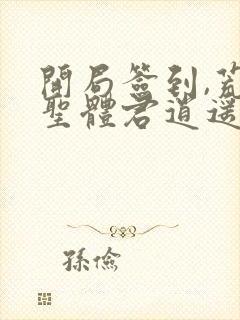 開局簽到,荒
聖體君逍遥
孫儉